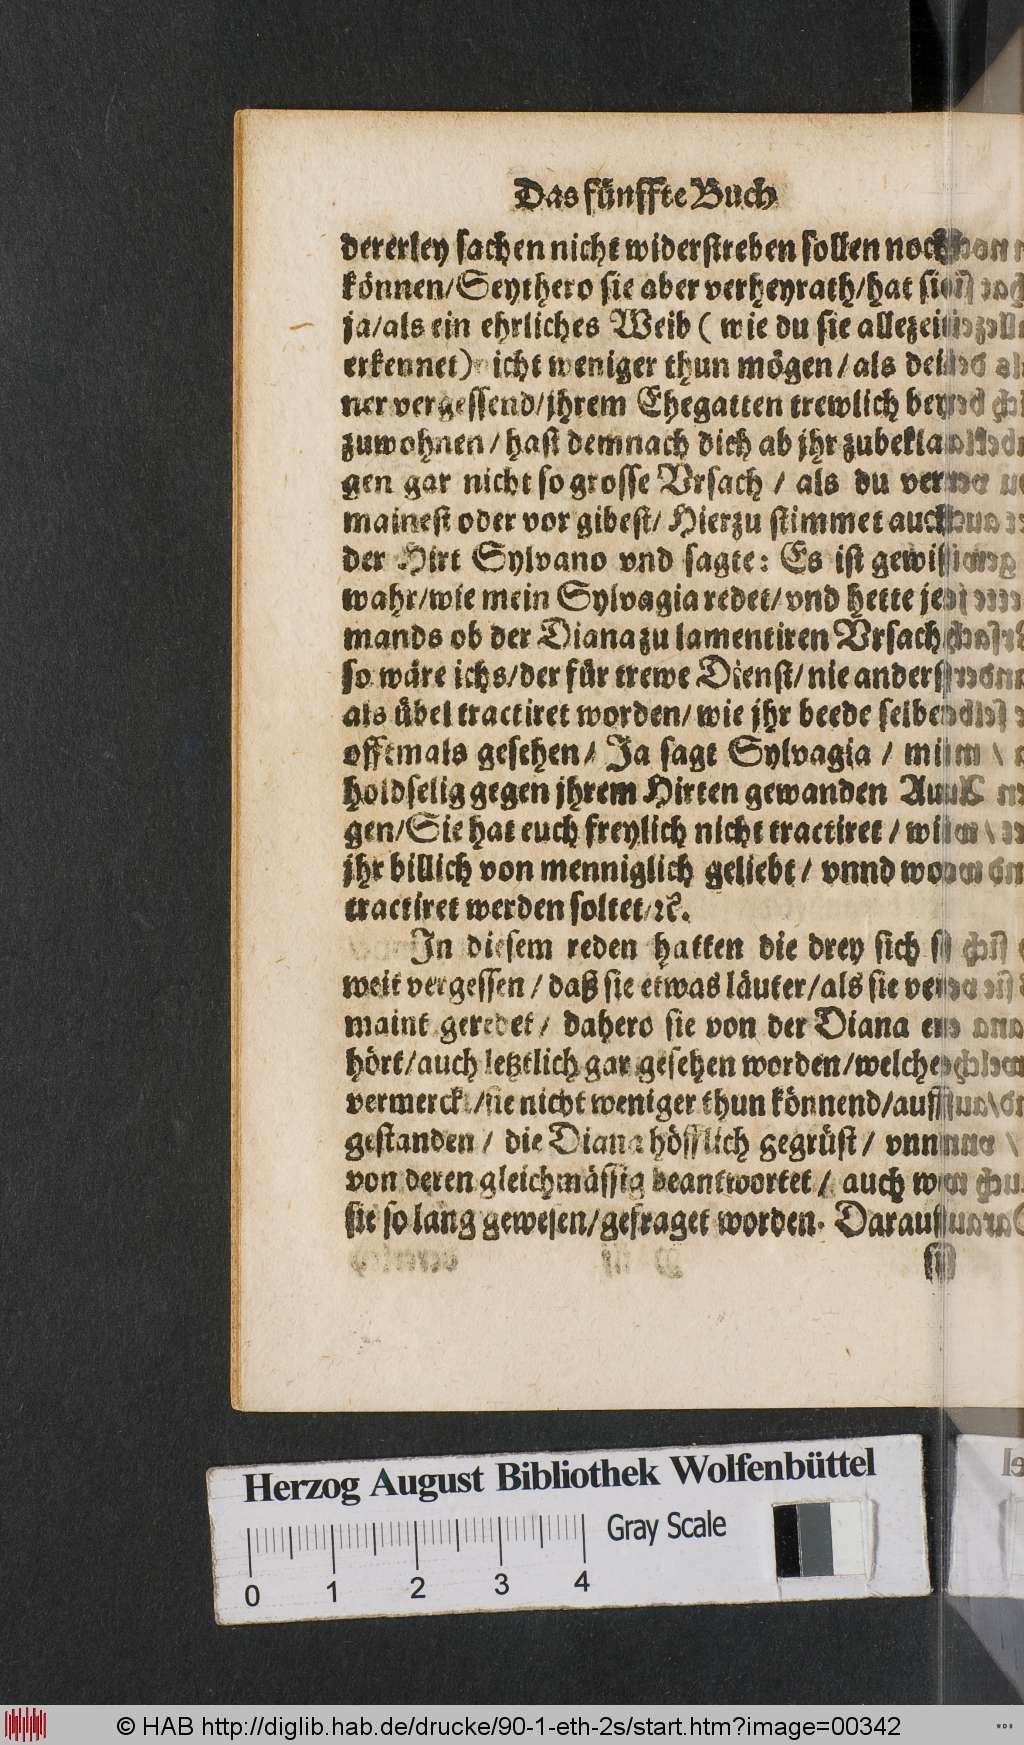 Das fünffte Buch
dererley sachen nicht widerstreben sollen noch
können/Seythero sie aber verheyrath/hat sie
ja/als ein ehrliches Weib ( wie du sie allezeit
erkennet) nicht weniger thun mögen/als dei
ner vergessend/jhrem Ehegatten trewlich bey
zuwohnen/hast demnach dich ab jhr zubekla
gen gar nicht so grosse Vrsach / als du ver
mainest oder vor gibest/ Hierzu stimmet auch
der Hirt Sylvano vnd sagte: Es ist gewiß
wahr/wie mein Sylvagia redet/vnd hette je
mands ob der Diana zu lamentiren Vrsach
so wäre ichs/der für trewe Dienst/nie anderst
als übel tractiret worden/wie jhr beede selbe
offtmals gesehen/ Ja sagt Sylvagia / mit
holdselig gegen jhrem Hirten gewanden Au
gen/Sie hat euch freylich nicht tractiret / wie
jhr billich von menniglich geliebt / vnnd wol
tractiret werden soltet/ꝛc.
In diesem reden hatten die drey sich so
weit vergessen / daß sie etwas läuter/als sie ver
maint geredet/ dahero sie von der Diana er
hört/auch letztlich gar gesehen worden/welche
vermerckt/sie nicht weniger thun könnend/auff
gestanden / die Diana höfflich gegrüst / vnnd
von deren gleichmässig beantwortet / auch wo
sie so lang gewesen/gefraget worden. Darauff
sie
Herzog August Bibliothek Wolfenbüttel
Gray Scale
0 1 2 3 4
© HAB http://diglib.hab.de/drucke/90-1-eth-2s/start.htm?image=00342